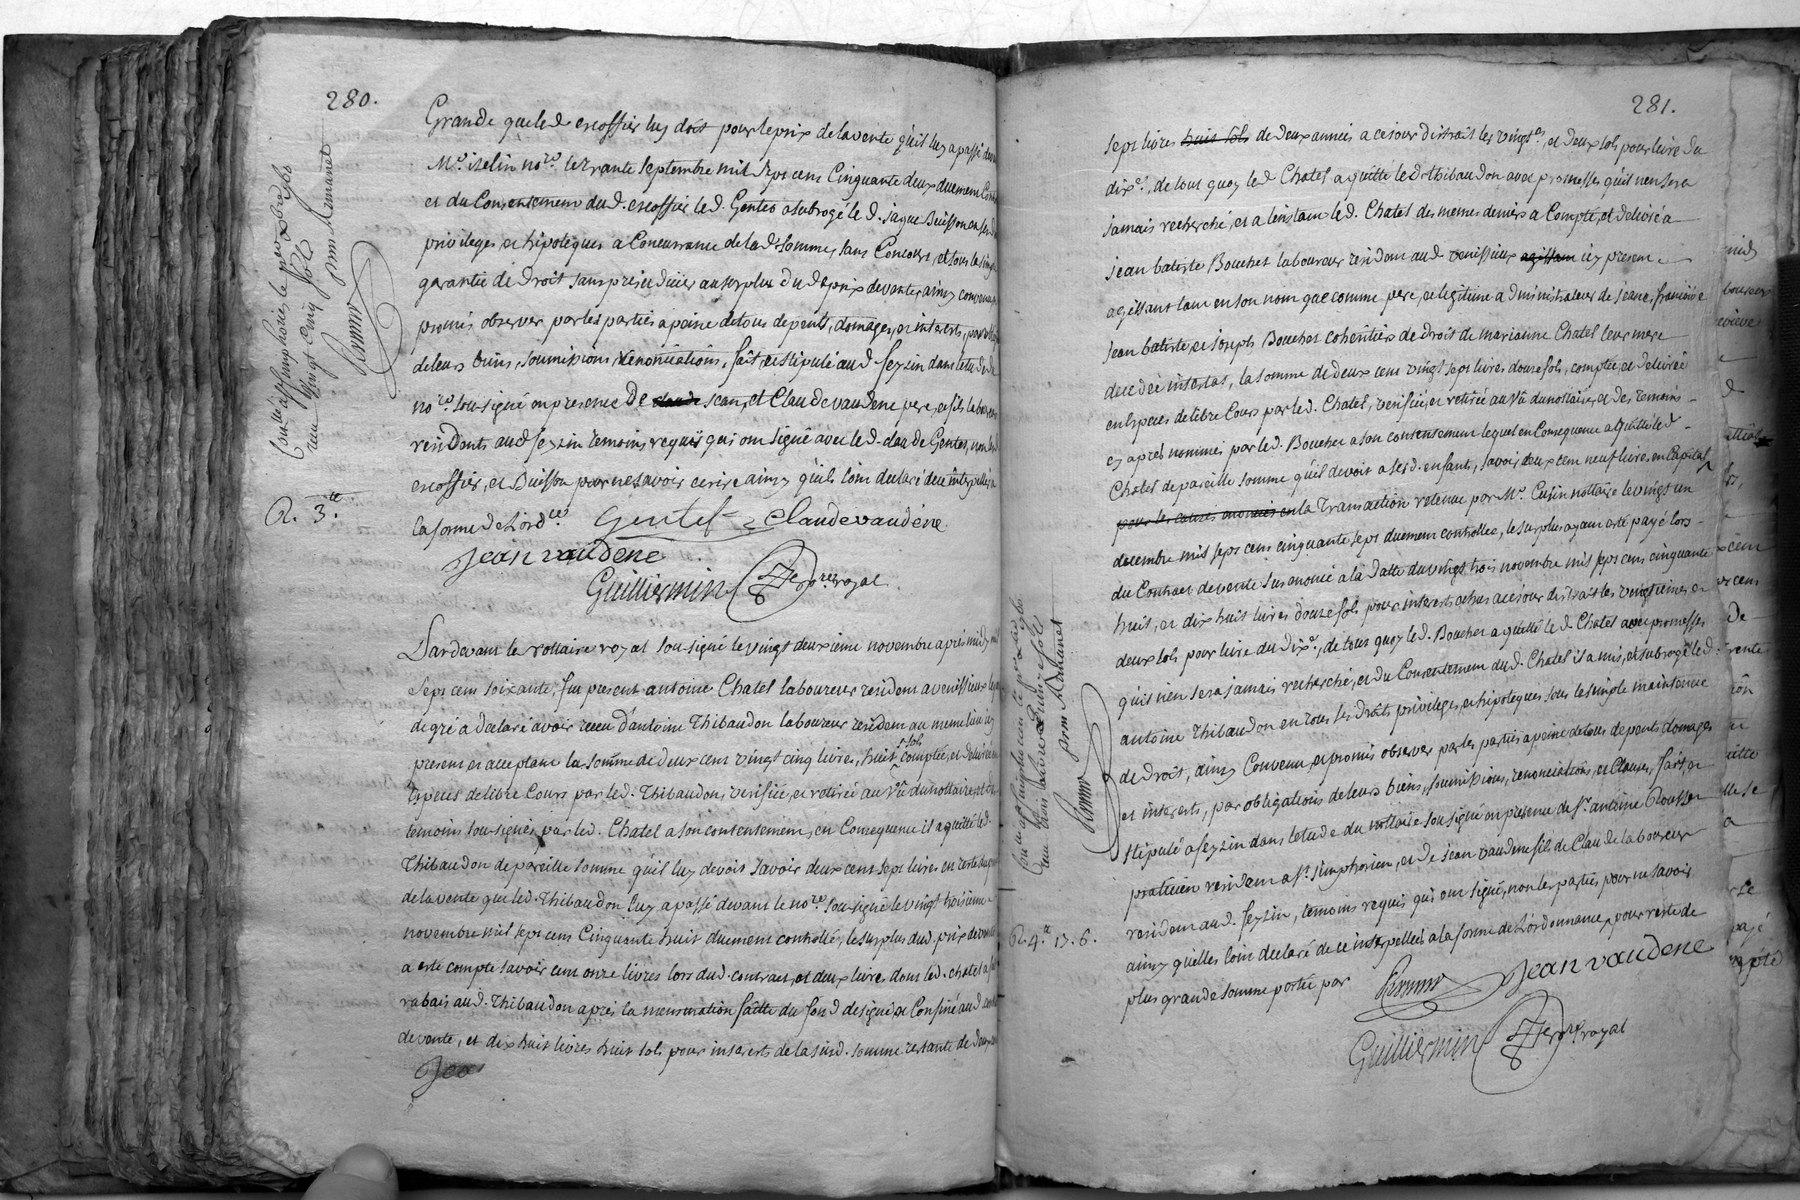 280.
Grande que led escoffier luy doit pour le prix de la vente qu'il luy a passé
Me. iselin nore. le trante septembre mil sept cens Cinquante deux duement
et du Consentement dud. escoffier led. Gentet a subrogé led. jaque Buisson
privileges et hipoteques a Concurrance de lad. Somme, sans Concours, et sous la simple
garantie de droit sans prejudicier au surplus dud. prix de vante, ainsy convenu
promis observer par les parties a peine de tous depents, domages, et interests, par
de leurs biens, soumissions, renonciations, fait, et stipulé aud. feyzin dans letude du
nore. sousigné en presence De claude jean, et Claude vaudene pere, et fils laboureurs
residents aud. feyzin temoins requis qui ont signé avec led. Gentet, non led.
escoffier, et Buisson pour ne savoir ecrire ainsy qu'ils l'ont declaré de ce interpellés a
la forme de L'ordce.
Gentet
Claude vaudene
Jean vaudene
Guilliermin
nore royal
R. 3.tt
Pardevant le nottaire royal sousigné le vingt deuxieme novembre apres midy mil
sept cent soixante, fut present antoine Chatel laboureur resident a venissieux
de gré a declaré avoir receu d'antoine Thibaudon laboureur resident au meme lieu icy
present et acceptant la somme de deux cent vingt cinq livres, huit sols comptée, et delivrée
Especes de libre Cours par led. Thibaudon, verifiée, et retirée au vû du nottaire, et des
temoins sousignés par led. Chatel a son contentement, en Consequence il a quitté led.
Thibaudon de pareille somme qu'il luy devoit savoir deux cent sept livres en reste du prix
de la vente que led. Thibaudon luy a passé devant le nore. sousigné le vingt troisieme
novembre mil sept cens Cinquante huit duement controllé, le surplus dud. prix de vente
a eté compté savoir cent onze livres lors dud. contract, et deux livres dont led. chatel a fait
rabais aud. Thibaudon apres la mensuration faitte du fond designé, et Confiné aud.
de vente, et dix huit livres huit sols pour interests de la susd. somme restante de
prom Armanet
281.
sept livres huit sols de deux années a ce jour distrait les vingts., et deux sols pour livre du
dixe., de tout quoy led. Chatel a quitté led. Thibaudon avec promesses qu'il n'en sera
jamais recherché, et a l'instant led. Chatel des memes deniers a Compté, et delivré a
jean batiste Bouchet laboureur resident aud. venissieux agissant icy present
agissant tant en son nom que comme pere, et legitime administrateur de
jean batiste, et joseph Bouchet cohéritiers de droit de marianne Chatel leur mere
decedée intestat, la somme de deux cent vingt sept livres douze sols, comptée, et delivrée
en Especes de libre Cours par led. Chatel, verifiée, et retirée au vû du nottaire, et des temoins
cy apres nommés par led. Bouchet a son contentement lequel en Consequence a quitté led.
Chatel de pareille somme qu'il devoit a sesd. enfants, savoir deux cent neuf livres en Capital
pour les causes enoncées en la Transaction receue par Me. Cusin nottaire le vingt un
decembre mil sept cens cinquante sept duement controllée, le surplus ayant eté payé lors
du Contract de vente sus enoncé a la datte du vingt trois novembre mil sept cens cinquante
huit, et dix huit livres douze sols pour interests echus a ce jour distrait les vingtiemes, et
deux sols pour livre du dixe., de tout quoy led. Bouchet a quitté led. Chatel avec promesses
qu'il n'en sera jamais recherché, et du Consentement dud. Chatel il a mis, et subrogé led.
antoine Thibaudon en tous les droits privileges, et hipoteques sous la simple maintenue
de droit, ainsy Convenu, et promis observer par les parties a peine de tous depents domages
et interests, par obligations de leurs biens, soumissions, renonciations, et Clauses, fait, et
stipulé a feyzin dans letude du nottaire sousigné en presence de sr. antoine Rousset
praticien resident a st. simphorien, et de jean vaudene fils de Claude laboureur
resident aud. feyzin, temoins requis qui ont signé, non les parties pour ne savoir
ainsy qu'elles l'ont declaré de ce interpellées a la forme de L'ordonnance, pour reste de
plus grande somme portée par
Jean vaudene
Guilliermin
nore royal
R. 4.tt 17. 6.
prom Armanet